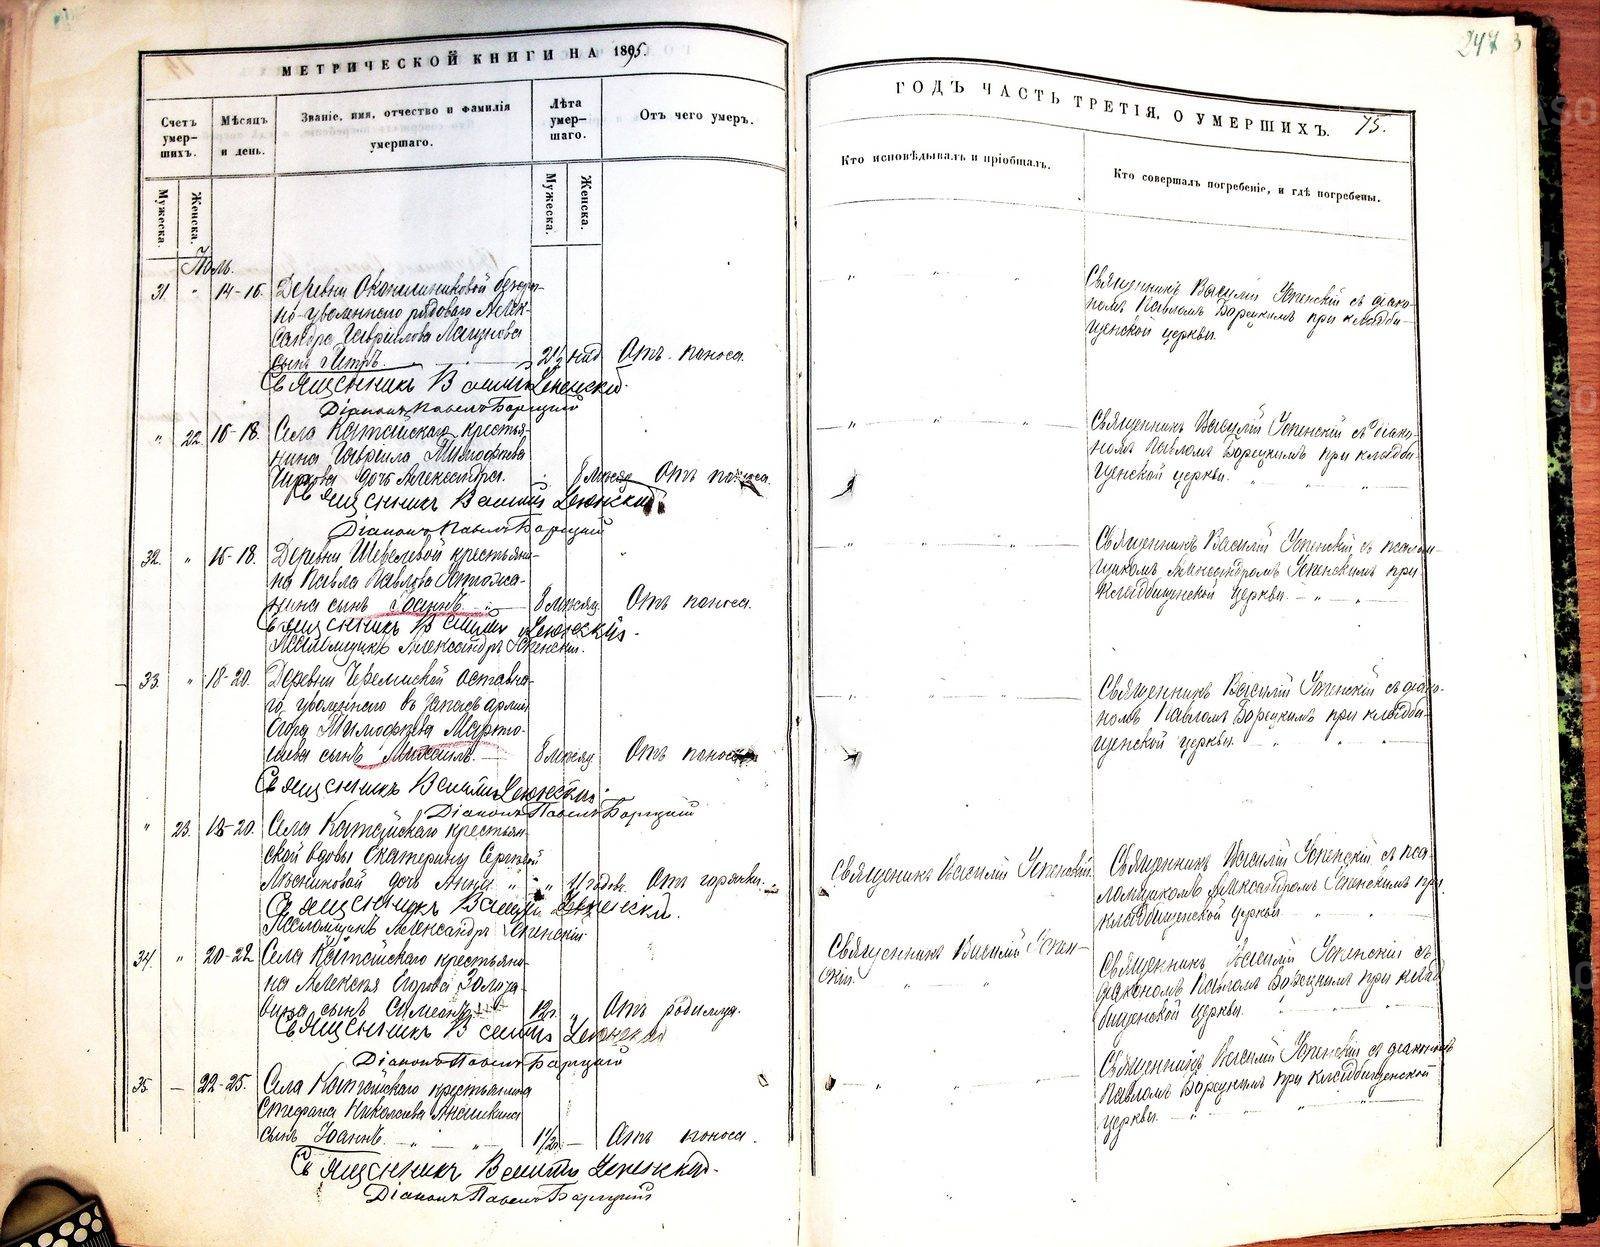 МЕТРИЧЕСКОЙ КНИГИ НА 1895.
Счетъ умер-шихъ.
Мѣсяцъ и день.
Званіе, имя, отчество и фамилія умершаго.
Лѣта умер-шаго.
Отъ чего умеръ.
Мужеска.
Женска.
Мужеска.
Женска.
Іюль.
31. " 14-16. Деревни
но-уволеннаго рядового Алек-
сандра Гавріилова
сынъ Петръ. 2½ нед Отъ поноса.
Священникъ Василій Успенскій.
Діаконъ Павелъ Борецкій
" 22 16-18. Села Катайскаго крестья-
нина Гавріила Тимофеева
дочь Александра. 8 мѣсяц Отъ поноса.
Священникъ Василій Успенскій
Діаконъ Павелъ Борецкій
32. " 16-18. Деревни Шевелевой крестьяни-
на Павла Павлова
сынъ Іоаннъ. 8 мѣсяц Отъ поноса.
Священникъ Василій Успенскій.
Псаломщикъ Александръ Успенскій.
33. " 18-20. Деревни Черемисской отставно-
го уволеннаго въ запасъ арміи
Егора Тимофеева Марто-
сынъ Михаилъ. 8 мѣсяц Отъ поноса
Священникъ Василій Успенскій.
Діаконъ Павелъ Борецкій
" 23. 18-20. Села Катайскаго крестьян-
ской вдовы Екатерины Сергѣевой
Лѣсниковой дочь Анна " " 11 годовъ. Отъ горячки.
Священникъ Василій Успенскій.
Псаломщикъ Александръ Успенскій
34. " 20-22 Села Катайскаго крестьяни-
на Алексѣя Егорова
сынъ Симеонъ 12г. Отъ родимца.
Священникъ Василій Успенскій
Діаконъ Павелъ Борецкій
35. — 22-25. Села Катайскаго крестьянина
Стефана Николаева
сынъ Іоаннъ. 1½г. — Отъ поноса.
Священникъ Василій Успенскій.
Діаконъ Павелъ Борецкій
247
ГОДЪ ЧАСТЬ ТРЕТІЯ, О УМЕРШИХЪ. 75.
Кто исповѣдывалъ и пріобщалъ.
Кто совершалъ погребеніе, и гдѣ погребены.
Священникъ Василій Успенскій съ діако-
номъ Павломъ Борецкимъ при кладби-
щенской церкви.
Священникъ Василій Успенскій съ діако-
номъ Павломъ Борецкимъ при кладби-
щенской церкви.
Священникъ Василій Успенскій съ псалом-
щикомъ Александромъ Успенскимъ при
кладбищенской церкви.
Священникъ Василій Успенскій съ діако-
номъ Павломъ Борецкимъ при кладби-
щенской церкви.
Священникъ Василій Успенскій.
Священникъ Василій Успенскій съ пса-
ломщикомъ Александромъ Успенскимъ при
кладбищенской церкви
Священникъ Василій Успен-
скій.
Священникъ Василій Успенскій съ
діакономъ Павломъ Борецкимъ при клад-
бищенской церкви.
Священникъ Василій Успенскій съ діакономъ
Павломъ Борецкимъ при кладбищенской
церкви.